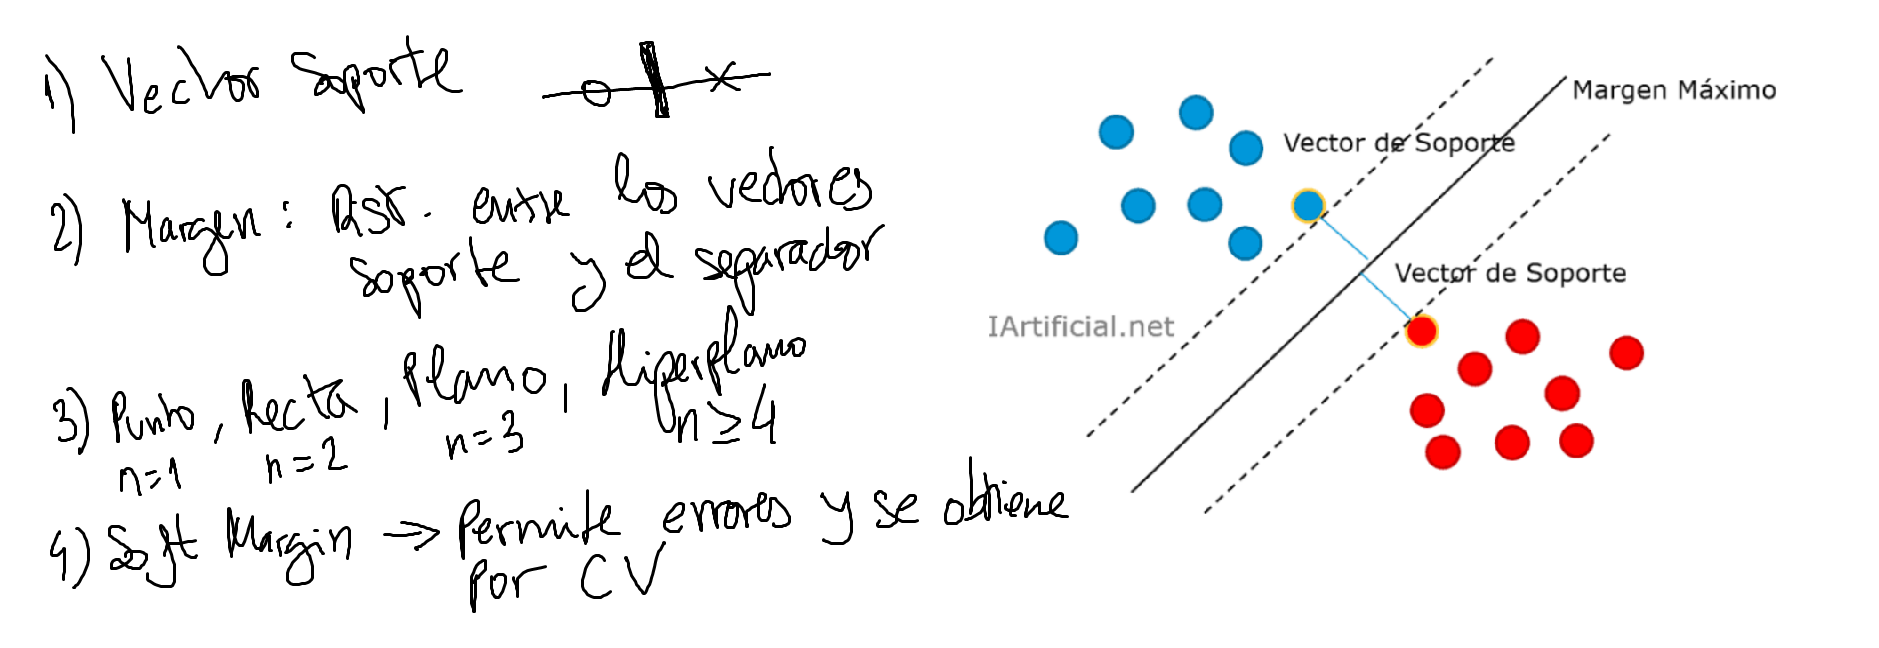 1) Vector Soporte
2) Margen: Dist. entre los vectores
soporte y el separador
3) Punto, Recta, Plano, Hiperplano
n=1 n=2 n=3 n≥4
4) Soft Margin → Permite errores y se obtiene
por CV
Margen Máximo
Vector de Soporte
Vector de Soporte
IArtificial.net